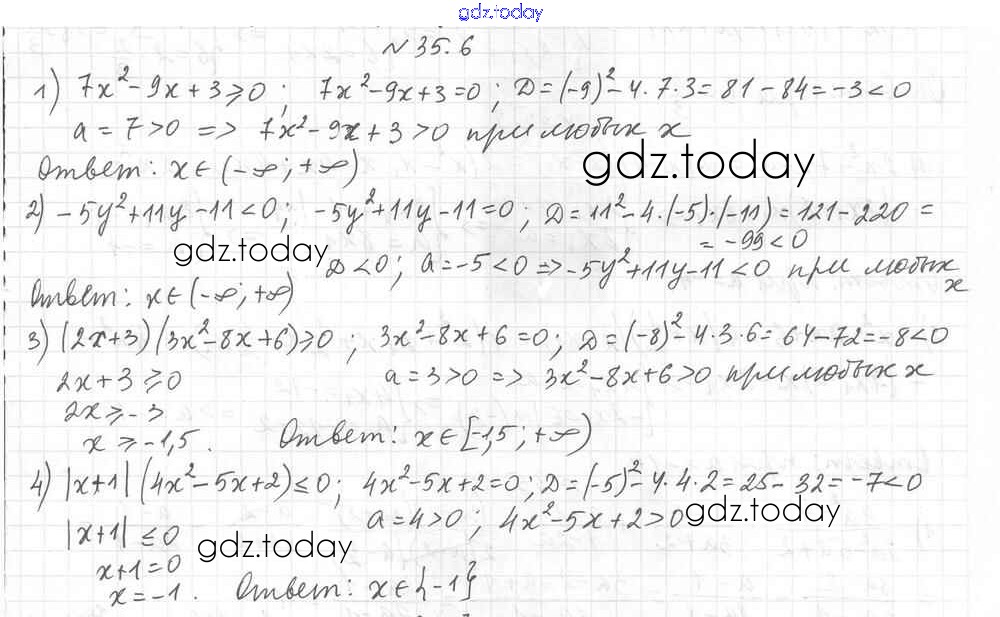 gdz.today
№ 35.6
1) 7x² - 9x + 3 ≥ 0 ; 7x² - 9x + 3 = 0 ; D = (-9)² - 4 · 7 · 3 = 81 - 84 = -3 < 0
a = 7 > 0 => 7x² - 9x + 3 > 0 при любых x
gdz.today
Ответ: x ∈ (-∞; +∞)
2) -5y² + 11y - 11 < 0 ; -5y² + 11y - 11 = 0 ; D = 11² - 4 · (-5) · (-11) = 121 - 220 =
= -99 < 0
gdz.today
D < 0 ; a = -5 < 0 => -5y² + 11y - 11 < 0 при любых
x
Ответ: x ∈ (-∞; +∞)
3) (2x+3)(3x² - 8x + 6) ≥ 0 ; 3x² - 8x + 6 = 0 ; D = (-8)² - 4 · 3 · 6 = 64 - 72 = -8 < 0
2x + 3 ≥ 0 a = 3 > 0 => 3x² - 8x + 6 > 0 при любых x
2x ≥ -3
x ≥ -1,5. Ответ: x ∈ [-1,5; +∞)
4) |x+1| (4x² - 5x + 2) ≤ 0 ; 4x² - 5x + 2 = 0 ; D = (-5)² - 4 · 4 · 2 = 25 - 32 = -7 < 0
a = 4 > 0 ; 4x² - 5x + 2 > 0 gdz.today
|x+1| ≤ 0 gdz.today
x+1 = 0
x = -1. Ответ: x ∈ {-1}